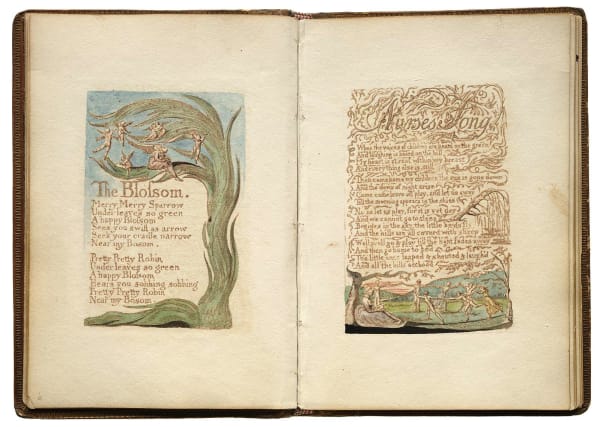 The Blossom.
Merry Merry Sparrow
Under leaves so green
A happy Blossom
Sees you swift as arrow
Seek your cradle narrow
Near my Bosom.
Pretty Pretty Robin
Under leaves so green
A happy Blossom
Hears you sobbing sobbing
Pretty Pretty Robin
Near my Bosom
Nurse's Song
When the voices of children are heard on the green
And laughing is heard on the hill,
My heart is at rest within my breast
And every thing else is still
Then come home my children, the sun is gone down
And the dews of night arise
Come come leave off play, and let us away
Till the morning appears in the skies
No no let us play, for it is yet day
And we cannot go to sleep
Besides in the sky, the little birds fly
And the hills are all coverd with sheep
Well well go & play till the light fades away
And then go home to bed
The little ones leaped & shouted & laugh'd
And all the hills ecchoed